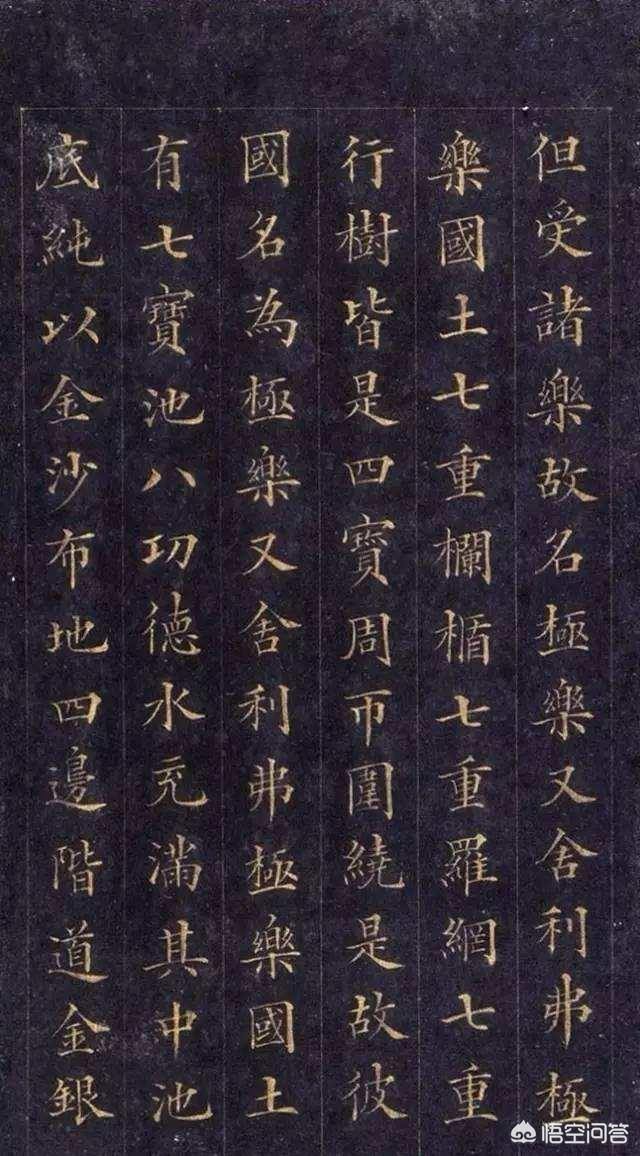 但受諸樂故名極樂又舍利弗極
樂國土七重欄楯七重羅網七重
行樹皆是四寶周帀圍繞是故彼
國名為極樂又舍利弗極樂國土
有七寶池八功德水充滿其中池
底純以金沙布地四邊階道金銀
悟空问答